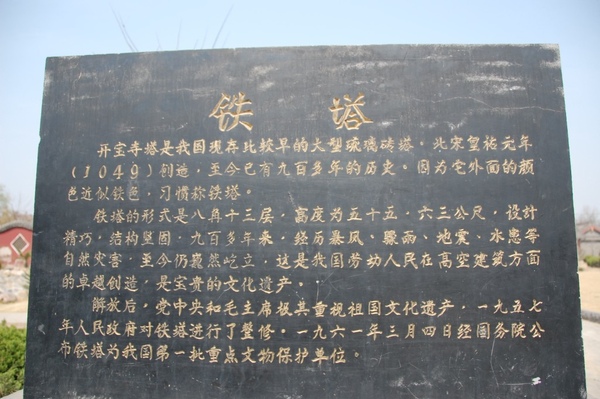 铁 塔
开宝寺塔是我国现存比较早的大型琉璃砖塔。北宋皇祐元年
(1049)创造，至今已有九百多年的历史。因为它外面的颜
色近似铁色，习惯称铁塔。
铁塔的形式是八角十三层，高度为五十五·六三公尺，设计
精巧，结构坚固。九百多年来，经历暴风、骤雨、地震、水患等
自然灾害，至今仍巍然屹立，这是我国劳动人民在高空建筑方面
的卓越创造，是宝贵的文化遗产。
解放后，党中央和毛主席极其重视祖国文化遗产，一九五七
年人民政府对铁塔进行了整修。一九六一年三月四日经国务院公
布铁塔为我国第一批重点文物保护单位。